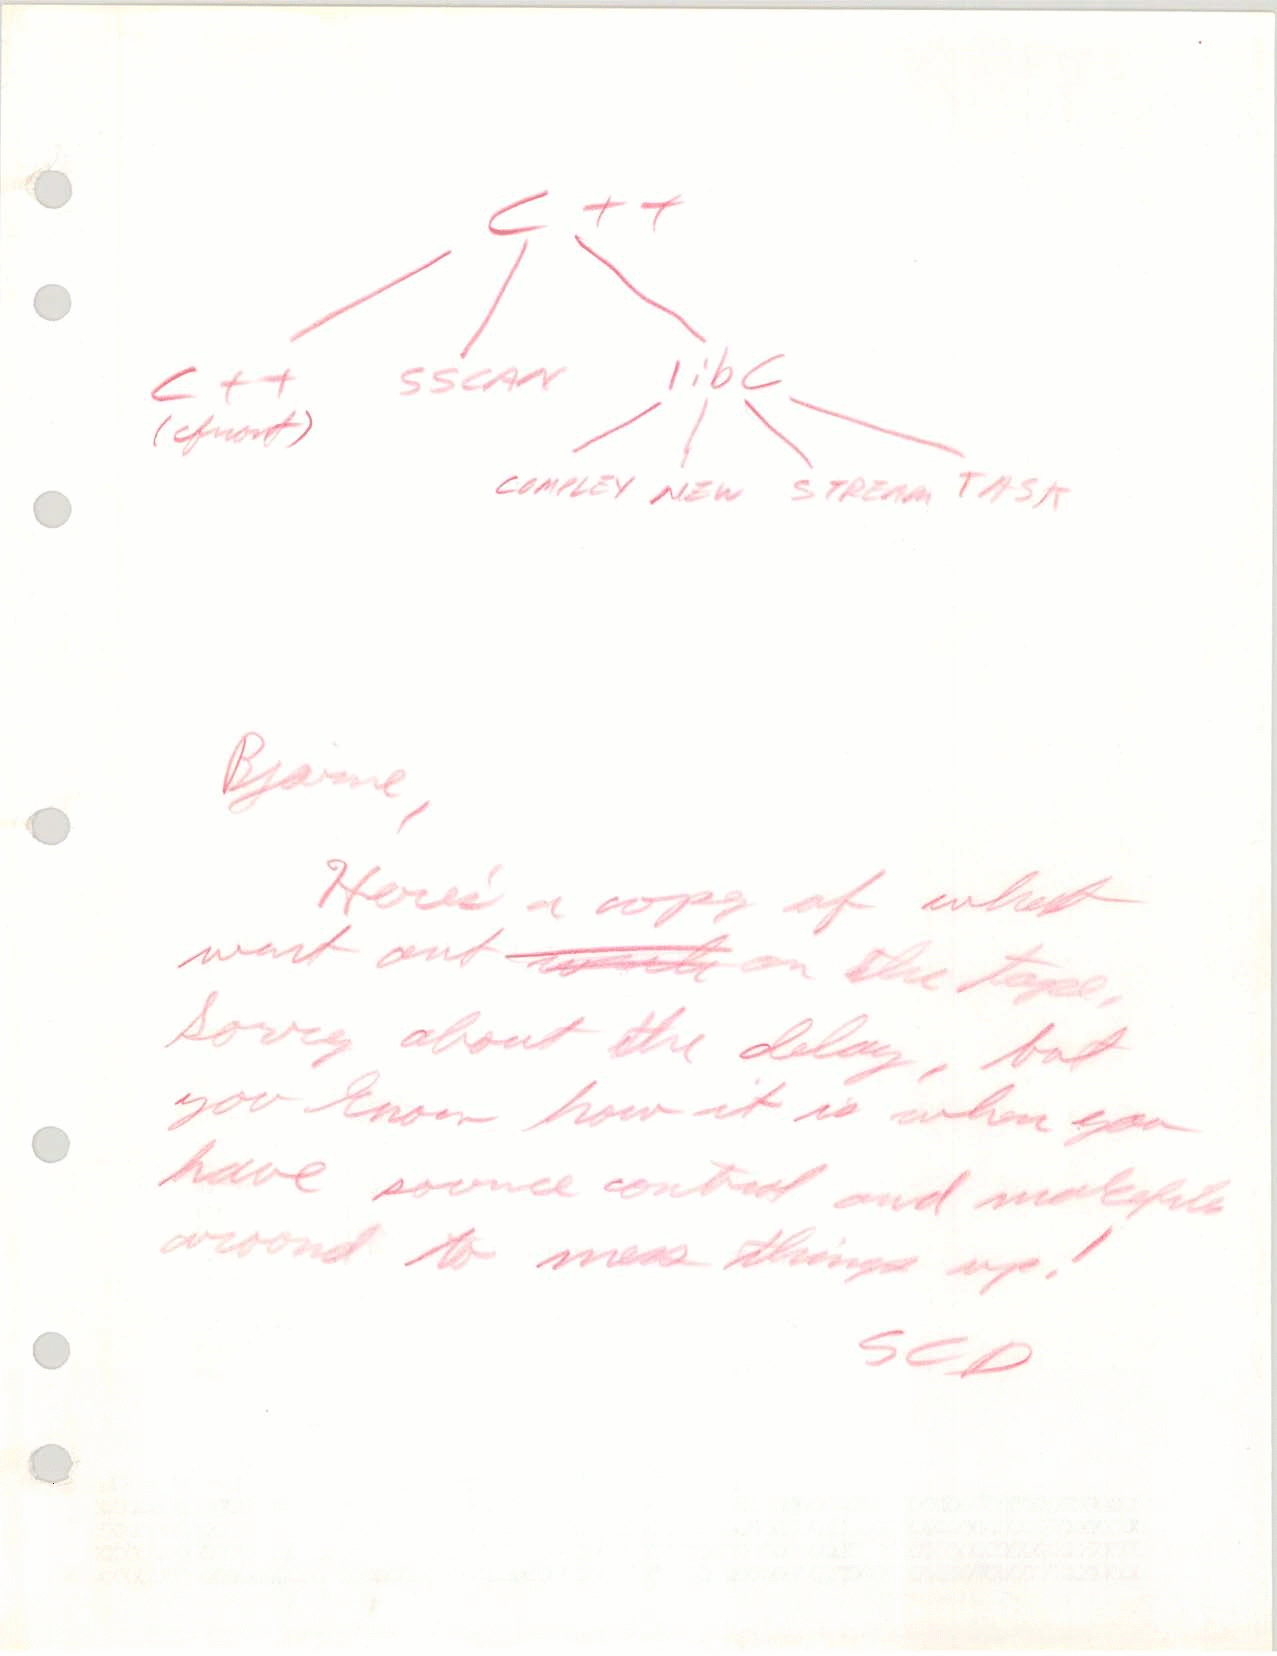 C++
C++ SSCAN libC
(cfront)
COMPLEX NEW STREAM TASK
Bjarne,
Here's a copy of what
went out on the tape.
Sorry about the delay, but
you know how it is when you
have source control and makefile
around to mess things up!
SCD